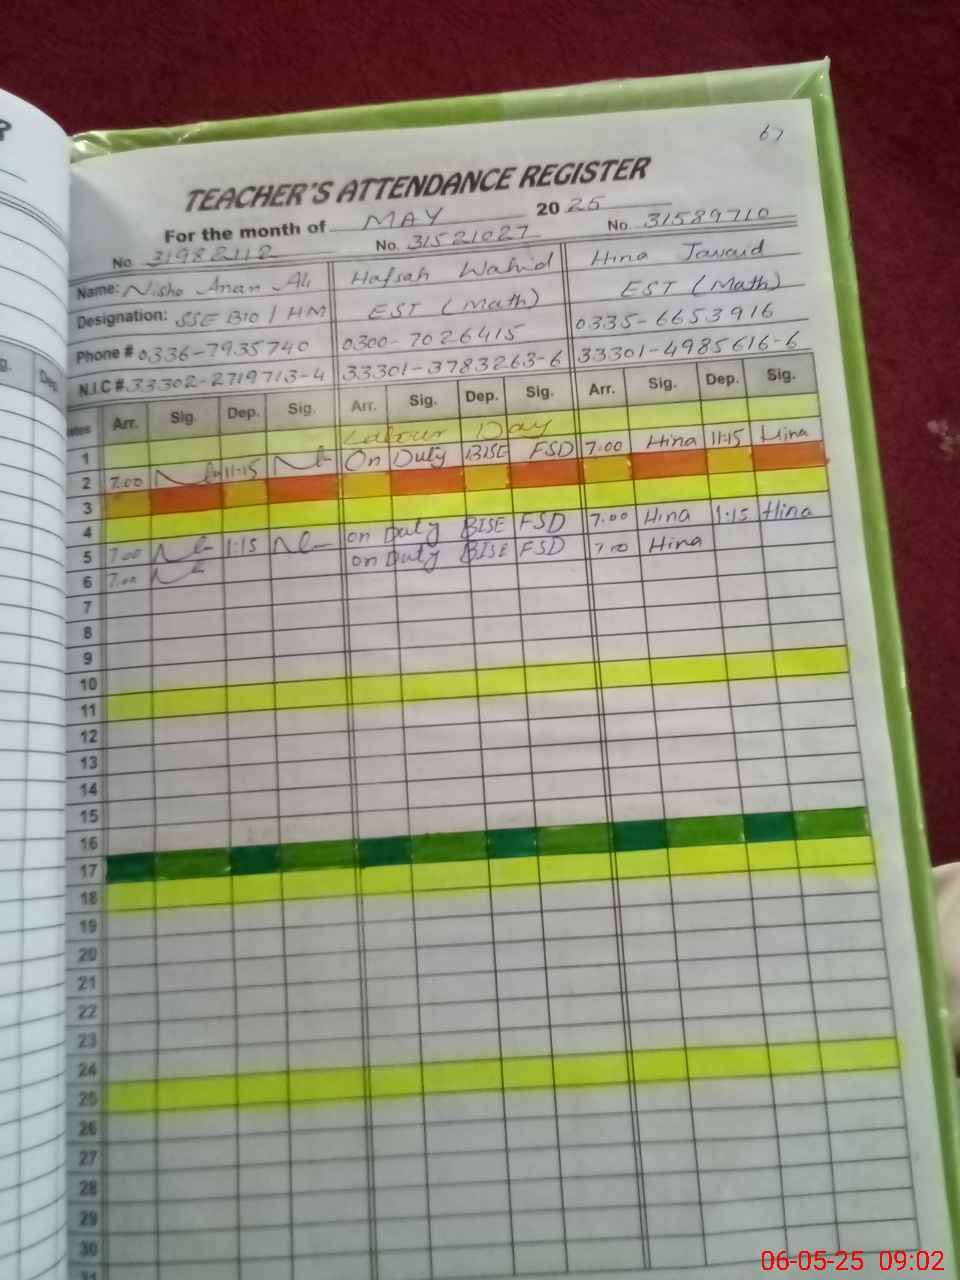 67
TEACHER'S ATTENDANCE REGISTER
For the month of MAY 2025
No. 31982112 No. 31521027 No. 31589710
Name: Nisho Anan Ali Hafsah Wahid Hina Javaid
Designation: SSE Bio / HM EST (Math) EST (Math)
Phone # 0336-7935740 0300-7026415 0335-6653916
N.I.C # 33302-2719713-4 33301-3783263-6 33301-4985616-6
Arr. Sig. Dep. Sig. Arr. Sig. Dep. Sig. Arr. Sig. Dep. Sig.
1 Labour Day
2 7:00 11:15 On Duty BISE FSD 7:00 Hina 11:15 Hina
3
4
5 7:00 1:15 on Duty BISE FSD 7:00 Hina 1:15 Hina
6 7:00 on Duty BISE FSD 7:00 Hina
7
8
9
10
11
12
13
14
15
16
17
18
19
20
21
22
23
24
25
26
27
28
29
30
31
06-05-25 09:02